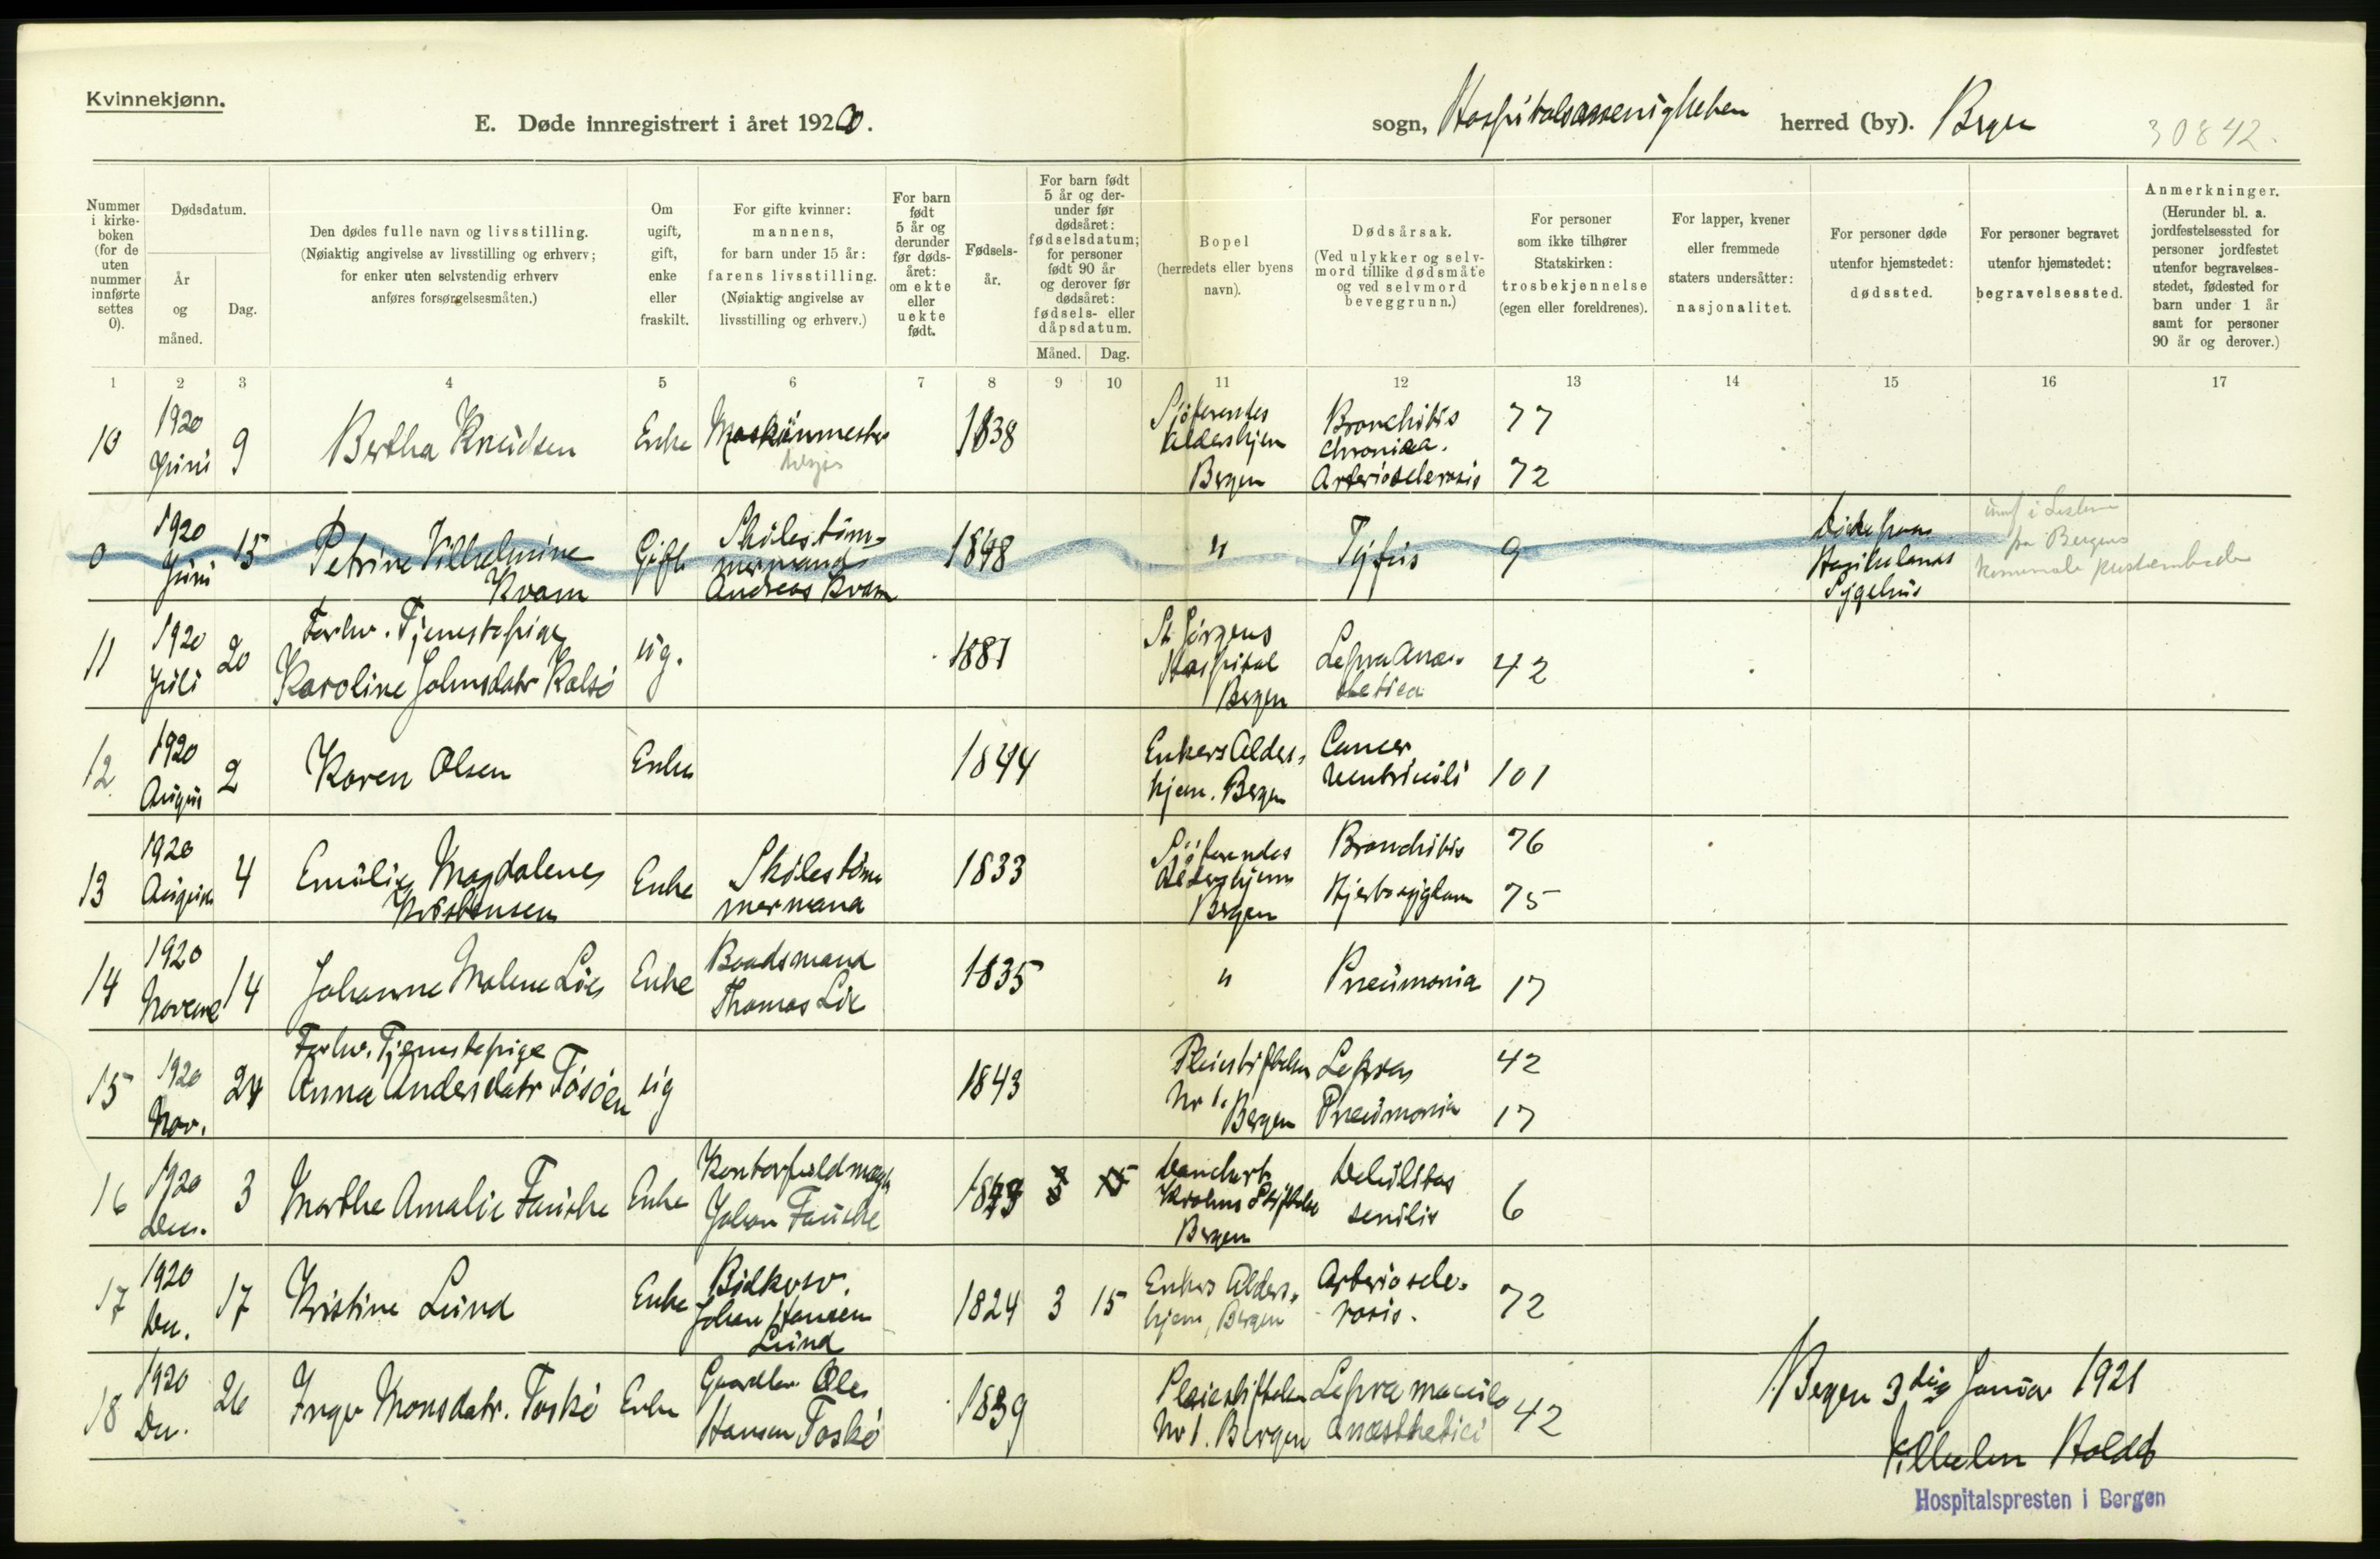 Kvinnekjønn.
E. Døde innregistrert i året 1920.
sogn, herred (by). Bergen
30842.
Nummer i kirkeboken (for de uten nummer innførte settes 0).
Dødsdatum.
År og måned.
Dag.
Den dødes fulle navn og livsstilling.
(Nøiaktig angivelse av livsstilling og erhverv;
for enker uten selvstendig erhverv
anføres forsørgelsesmåten.)
Om ugift, gift, enke eller fraskilt.
For gifte kvinner:
mannens,
for barn under 15 år:
farens livsstilling.
(Nøiaktig angivelse av
livsstilling og erhverv.)
For barn født 5 år og derunder før dødsåret: om ekte eller uekte født.
Fødselsår.
For barn født 5 år og derunder før dødsåret: fødselsdatum; for personer født 90 år og derover før dødsåret: fødsels- eller dåpsdatum.
Måned. Dag.
Bopel
(herredets eller byens navn).
Dødsårsak.
(Ved ulykker og selvmord tillike dødsmåte og ved selvmord beveggrunn.)
For personer som ikke tilhører Statskirken: trosbekjennelse (egen eller foreldrenes).
For lapper, kvener eller fremmede staters undersåtter: nasjonalitet.
For personer døde utenfor hjemstedet: dødssted.
For personer begravet utenfor hjemstedet: begravelsessted.
Anmerkninger.
(Herunder bl. a. jordfestelsessted for personer jordfestet utenfor begravelsesstedet, fødested for barn under 1 år samt for personer 90 år og derover.)
1 2 3 4 5 6 7 8 9 10 11 12 13 14 15 16 17
10 1920 Juni 9 Bertha Knudsen Enke 1838 Bergen Bronchitis chronica. Arteriosclerosis 77 72
0 1920 Juni 15 Petrine Vilhelmine Kvam Gift Skibstømmermand Andreas Kvam 1848 " Tyfus 9 Sygehus
11 1920 Juli 20 Forhv. Tjenestepige Karoline Johnsdatr Kalsø ug. 1881 St. Jørgens Hospital Bergen Lepra Anæsthetica 42
12 1920 August 2 Karen Olsen Enke 1844 Enkers Alders-hjem. Bergen Cancer ventriculi 101
13 1920 August 4 Emilie Magdalene Kristensen Enke Skibstømmermand 1833 Aldershjem Bergen Bronchitis Hjertesygdom 76 75
14 1920 Novemb 14 Johanne Malene Lie Enke Baadsmand Thomas Lie 1835 " Pneumonia 17
15 1920 Nov. 24 Forhv. Tjenestepige Anna Andersdatr Føsøen ug 1843 Pleiestiftelsen Nr 1. Bergen Lepra Pneumonia 42 17
16 1920 Dec. 3 Marthe Amalie Fauske Enke Johan Fauske Krohns Stiftelse Bergen Debilitas senilis 6
17 1920 Dec. 17 Kristine Lund Enke Johan Hansen Lund 1824 3 15 Enkers Alders-hjem, Bergen Arterioscle-rosis. 72
18 1920 Dec. 26 Inger Monsdatr. Toskø Enke Gaardbr. Ole Hansen Toskø 1839 Pleiestiftelsen Nr 1. Bergen Lepra maculo anæsthetici 42
Bergen 3die Januar 1921
Vilhelm Holdt
Hospitalspresten i Bergen